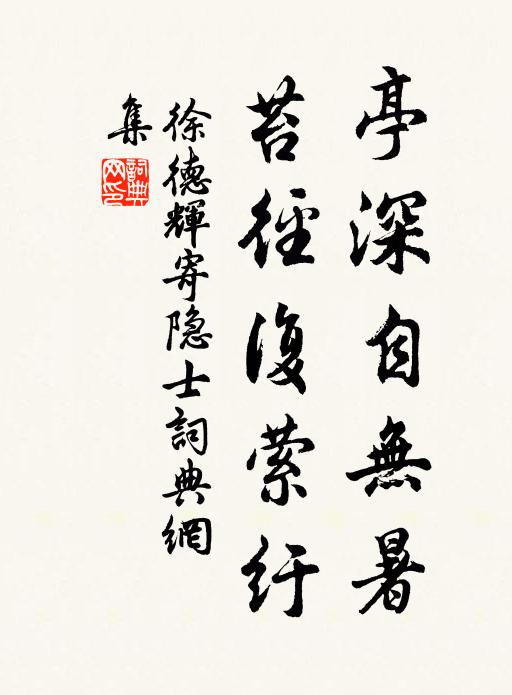 亭深自無暑
苔徑復縈紆
徐德輝寄隐士詞典網
集
詞典網印